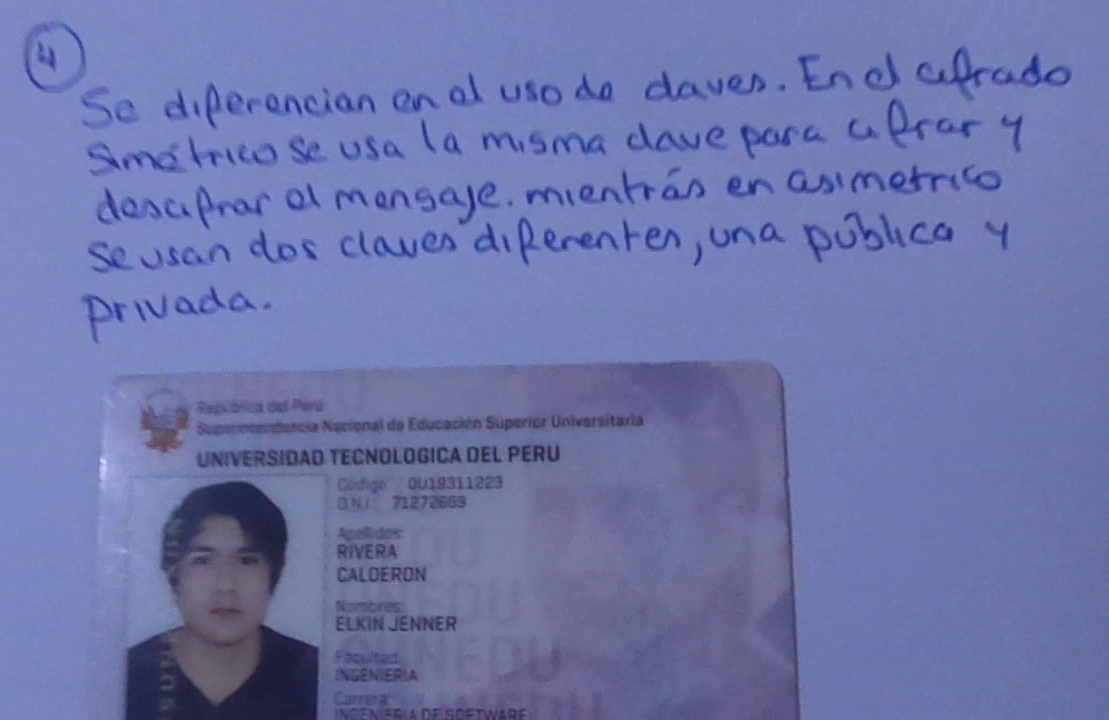 4
Se diferencian en el uso de claves. En el cifrado
simétrico se usa la misma clave para cifrar y
descifrar el mensaje. mientrás en asimetrico
se usan dos claves diferentes, una pública y
privada.
República del Perú
Superintendencia Nacional de Educación Superior Universitaria
UNIVERSIDAD TECNOLOGICA DEL PERU
Código: 0U19311223
D.N.I: 71272689
Apellidos:
RIVERA
CALDERON
Nombres:
ELKIN JENNER
Facultad:
INGENIERIA
Carrera:
INGENIERIA DE SOFTWARE